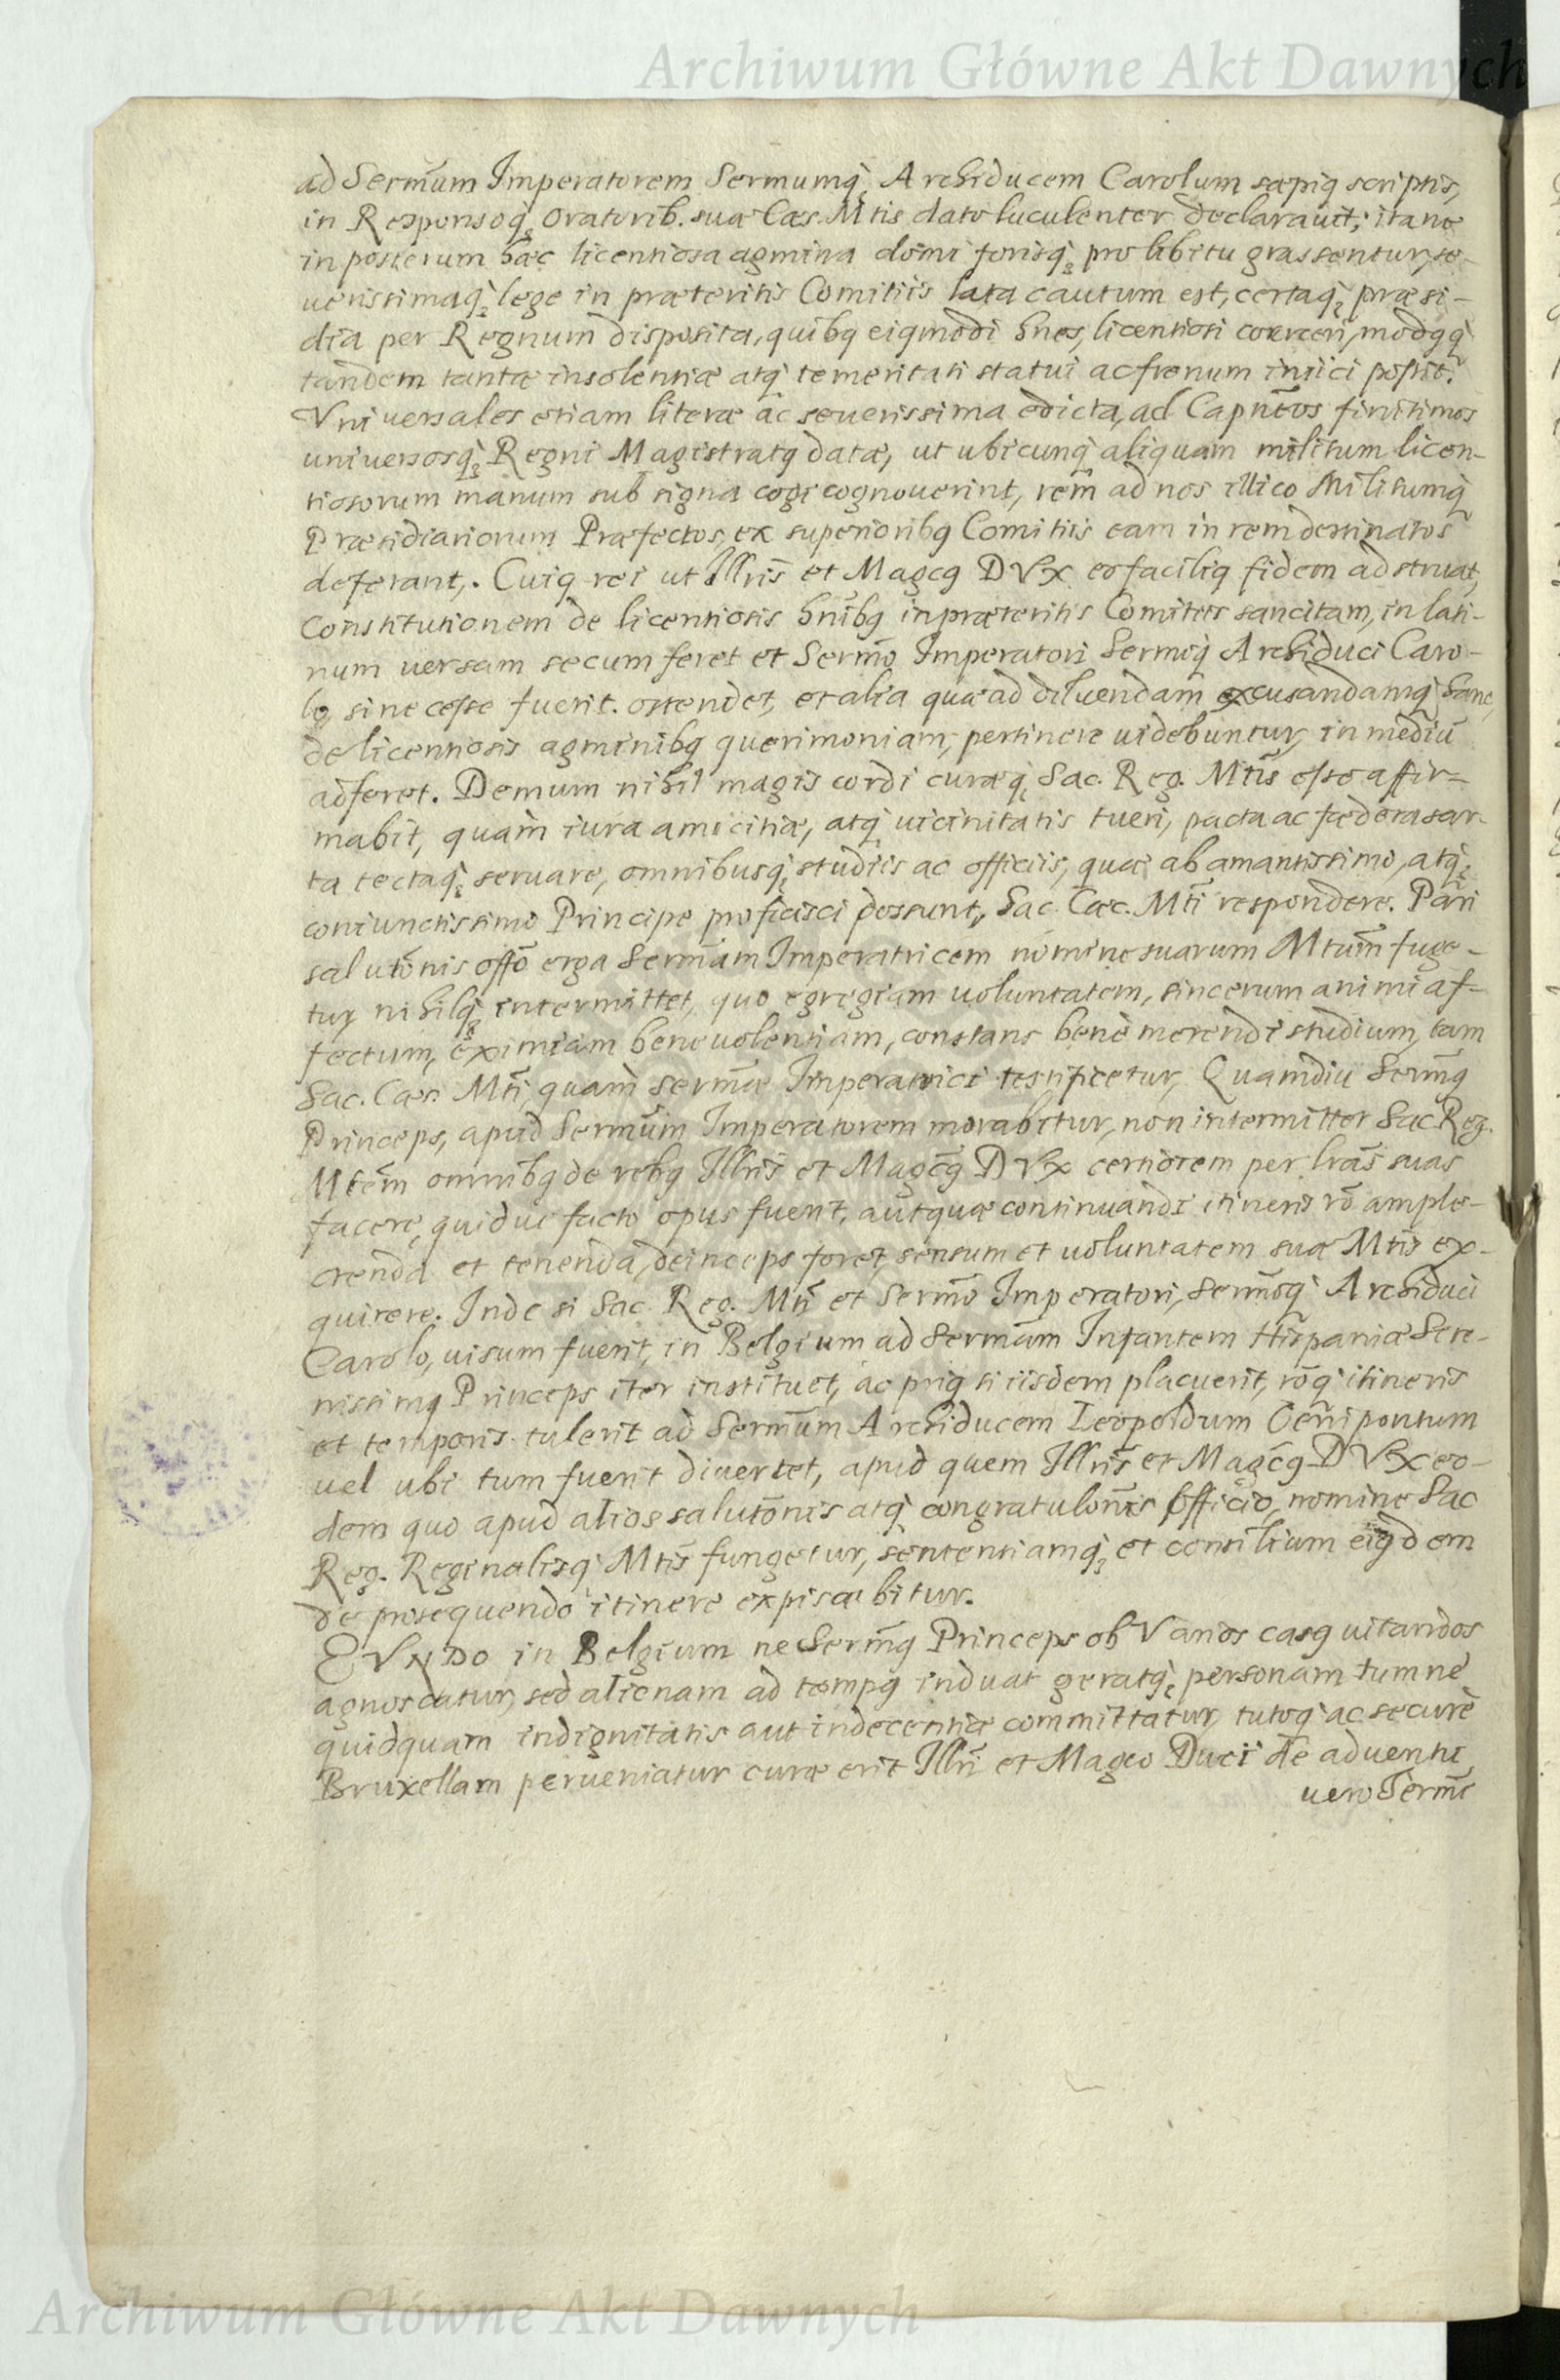 Archiwum Główne Akt Dawnych
ad Sermũm Imperatorem Sermumq; Archiducem Carolum sæpiq scriptis,
in Responsoq; Oratorib. suæ Cæs. Mtis dato luculenter declarauit; ita ne
in posterum hæc licentiosa agmina domi forisq; pro libitu grassentur, se-
uerissimaq; lege in præteritis Comitiis lata cautum est, certaq; præsi-
dia per Regnum disposita, quibq eiqmodi hnes, licentiosi coerceri, modqq;
tandem tantæ insolentiæ atq; temeritati statui ac frenum iniici possit.
Vniuersales etiam literæ ac seuerissima edicta, ad Capnẽos finitimos
universosq; Regni Magistratq datæ, ut ubicunq; aliquam militum licen-
tiosorum manum sub signa cogi cognouerint, rem ad nos illico Militumq;
Præsidiariorum Præfectos, ex superioribq Comitiis eam in rem destinatos
deferant,. Cuiq rei ut Illris̃ et Magcq DVx eo faciliq fidem adstruat,
Constitutionem de licentiosis hnĩbq in præteritis Comitiis sancitam, in lati-
num uersam secum feret et Sermõ Imperatori Sermoq; Archiduci Caro-
lo, si necesse fuerit. ostendet, et alia quæ ad diluendam excusandamq; hanc,
de licentiosis agminibq querimoniam, pertinere uidebuntur, in mediũ
adferet. Demum nihil magis cordi curæq; Sac. Reg. Mtis̃ esse affir=
mabit, quam iura amicitiæ, atq; uicinitatis tueri, pacta ac fædera sar-
ta tectaq; seruare, omnibusq; studiis ac officiis, quæ ab amantissimo, atq;
coniunctissimo Principe proficisci possunt, Sac. Cæc. Mtĩ respondere. Pari
salutõnis offõ erga Sermãm Imperatricem nomine suarum Mtum̃ fuge-
tur nihilq; intermittet, quo egregiam uoluntatem, sincerum animi af-
fectum, eximiam beneuolentiam, constans benè merendi studium, tam
Sac. Cæs. Mtĩ, quam Sermæ̃ Imperatrici testificetur, Quamdiu Sermq̃
Princeps, apud Sermũm Imperatorem morabitur, non intermittet Sac Reg.
Mtem̃ omnibq de rebq Illris̃ et Magcq̃ DVx certiorem per lrãs suas
facere, quidue facto opus fuerit, aut quæ continuandi itineris rõ ample-
ctenda et tenenda, deinceps foret, sensum et uoluntatem suæ Mtis ex-
quirere. Inde si Sac. Reg. Mtĩ et Sermõ Imperatori, Sermõq; Archiduci
Carolo, uisum fuerit, in Belgium ad Sermãm Infantem Hispaniæ Sere-
nissimq Princeps iter instituet, ac priq si iisdem placuerit, rõq; itineris
et temporis tulerit ad Sermũm Archiducem Leopoldum Oenipontum
uel ubi tum fuerit diuertet, apud quem Illris̃ et Magcq̃ DVx eo-
dem quo apud alios salutõnis atq; congratulonis̃ officio, nomine Sac
Reg. Reginalisq; Mtis̃ fungetur, sententiamq; et consilium eiqdem
de prosequendo itinere expiscabitur.
EVNDO in Belgium ne Sermq̃ Princeps ob Varios casq uitandos
agnoscatur, sed alienam ad tempq induat geratq; personam tum ne
quidquam indignitatis aut indecentiæ committatur, tutoq; ac securè
Bruxellam perueniatur curæ erit Illrĩ et Magco Duci de aduentu
uero Sermĩ
Archiwum Główne Akt Dawnych